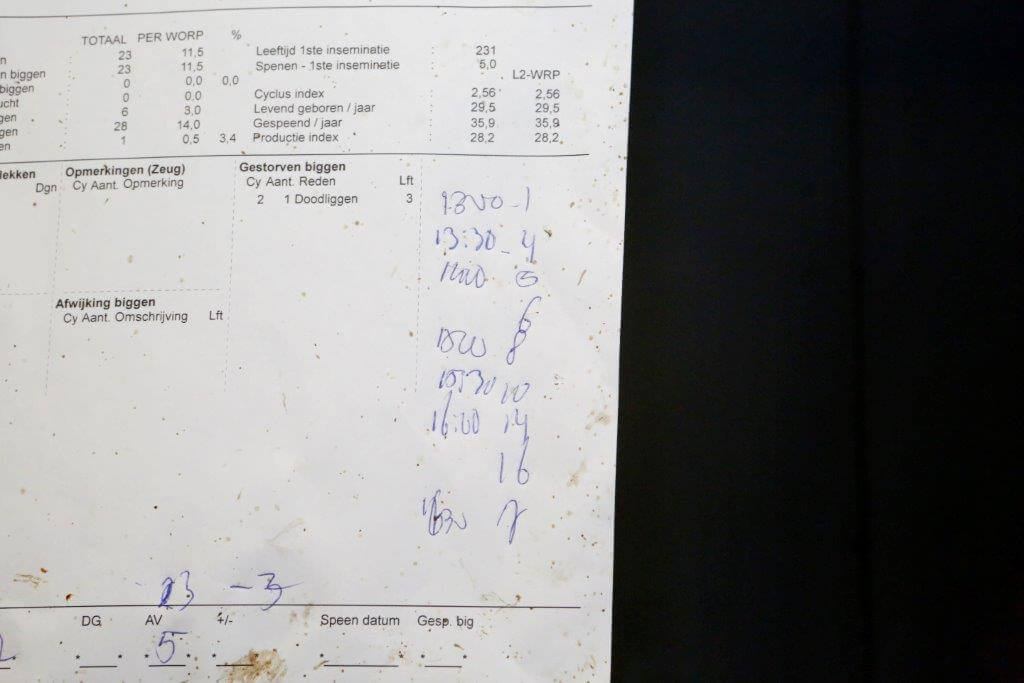 TOTAAL PER WORP %
n 23 11,5
n biggen : 23 11,5
biggen : 0 0,0 0,0
ucht : 0 0,0
gen : 6 3,0
gen : 28 14,0
en : 1 0,5 3,4
Leeftijd 1ste inseminatie : 231
Spenen - 1ste inseminatie : 5,0
L2-WRP
Cyclus index : 2,56 2,56
Levend geboren / jaar : 29,5 29,5
Gespeend / jaar : 35,9 35,9
Productie index : 28,2 28,2
lekken
Dgn
Opmerkingen (Zeug)
Cy Aant. Opmerking
Gestorven biggen
Cy Aant. Reden Lft
2 1 Doodliggen 3
Afwijking biggen
Cy Aant. Omschrijving Lft
13:30 - 4
6
8
15:30 10
16:00 14
16
-3
DG AV +/- Speen datum Gesp. big
5